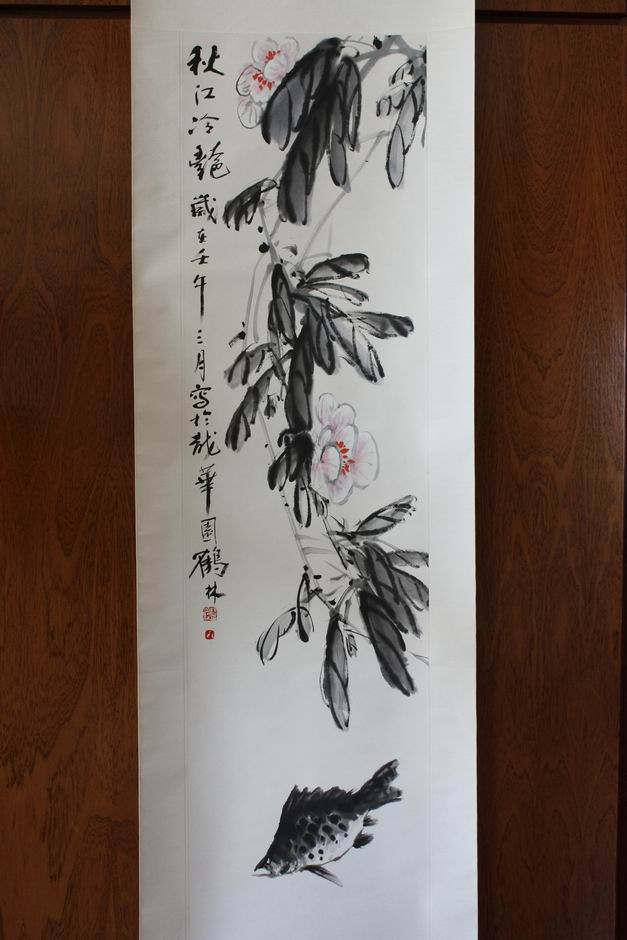 秋江冷艷歲在壬午三月寫於龍華園鶴林